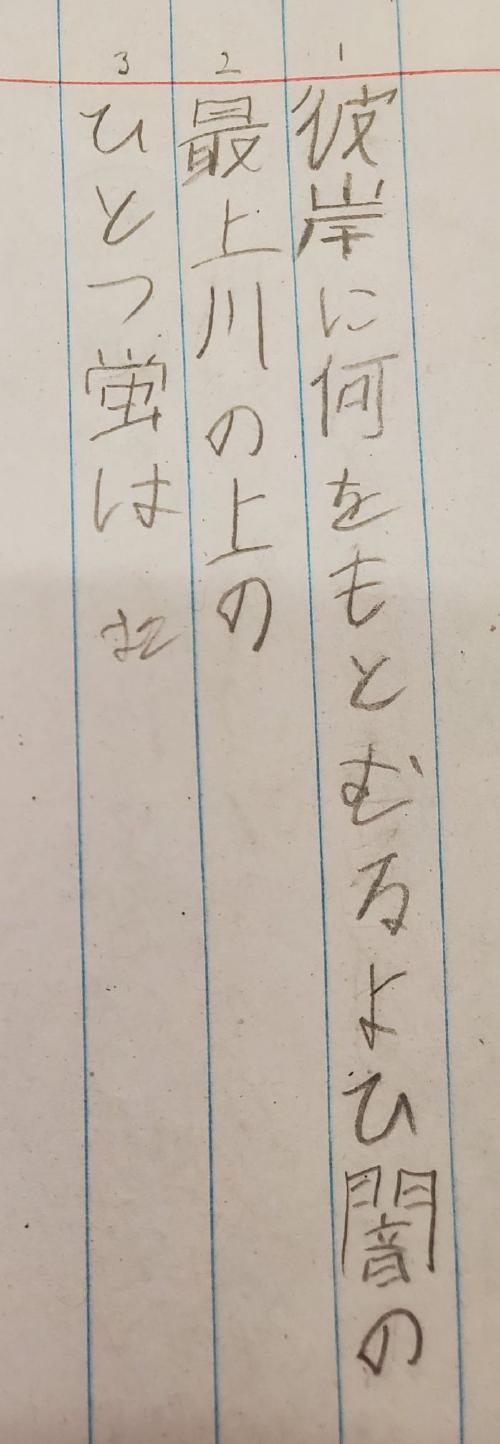 1 彼岸に何をもとむるよひ闇の
2 最上川の上の
3 ひとつ蛍は